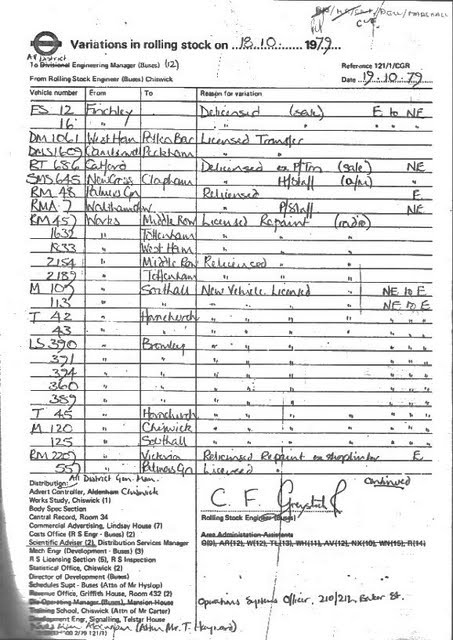 Variations in rolling stock on 18.10. 1979
All District
To Divisional Engineering Manager (Buses) (12)
Reference 121/1/CGR
From Rolling Stock Engineer (Buses) Chiswick
Date 19.10.79
Vehicle number From To Reason for variation
FS 12 Finchley Delicensed (sale) E to NE
16 " " "
DM 1061 West Ham Potters Bar Licensed Transfer
DMS 1609 Camberwell Peckham " "
RT 686 Catford Delicensed ex P/Trn (sale) NE
SMS 645 New Cross Clapham " H/Staff "
RM 48 Palmers Gn Relicensed E
RMA 7 Walthamstow " P/Staff NE
RM 457 Works Middle Row Licensed Repaint (radio)
1632 " Tottenham " "
1833 " West Ham " "
2154 " Middle Row Relicensed "
2189 " Tottenham " "
M 109 " Southall New Vehicle Licensed NE to E
113 " " " " " NE to E
T 42 " Hornchurch " " " " " "
43 " " " " " " " "
LS 390 " Bromley " " " " " "
391 " " " " " " " "
394 " " " " " " " "
360 " " " " " " " "
389 " " " " " " " "
T 45 " Hornchurch " " " " " "
M 120 " Chiswick " " " " " "
125 " Southall " " " " " "
RM 2207 " Victoria Relicensed Repaint E
557 " Palmers Gn Licensed "
Continued
Distribution: All District Gen. Man.
Advert Controller, Aldenham Chiswick
Works Study, Chiswick (1)
Body Spec Section
Central Record, Room 34
Commercial Advertising, Lindsay House (7)
Costs Office (R S Engr - Buses) (2)
Scientific Adviser (2), Distribution Services Manager
Mech Engr (Development - Buses) (3)
R S Licensing Section (5), R S Inspection
Statistics Office, Chiswick (2)
Director of Development (Buses)
Schedules Supt - Buses (Attn of Mr Hyslop)
Revenue Office, Griffith House, Room 432 (2)
Operating Manager (Buses), Mansion House
Training School, Chiswick (Attn of Mr Carter)
Development Engr, Signalling, Telstar House
C. F.
Rolling Stock Engineer (Buses)
Area Administation Assistants
Operations Systems Officer, 210/212
(Attn Mr. T. Hayward)
2/79 121/1